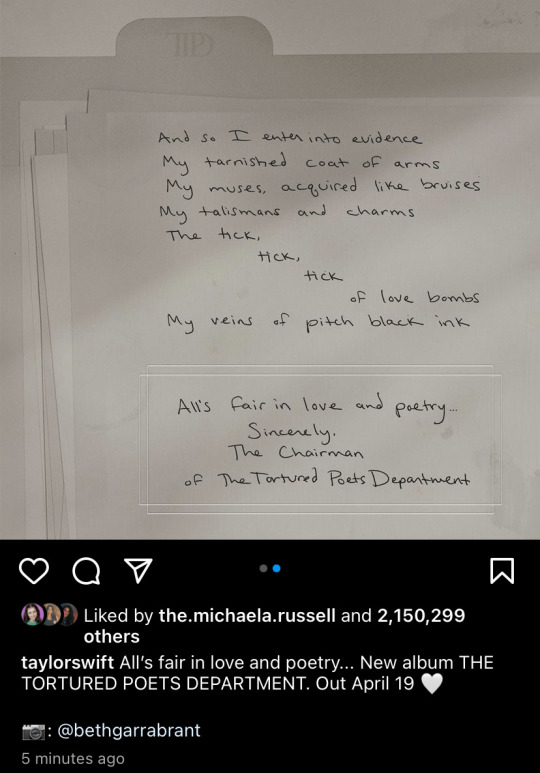 TTPD
And so I enter into evidence
My tarnished coat of arms
My muses, acquired like bruises
My talismans and charms
The tick,
tick,
tick
of love bombs
My veins of pitch black ink
All's fair in love and poetry...
Sincerely,
The Chairman
of The Tortured Poets Department
Liked by the.michaela.russell and 2,150,299
others
taylorswift All’s fair in love and poetry... New album THE
TORTURED POETS DEPARTMENT. Out April 19 🤍
📷: @bethgarrabrant
5 minutes ago